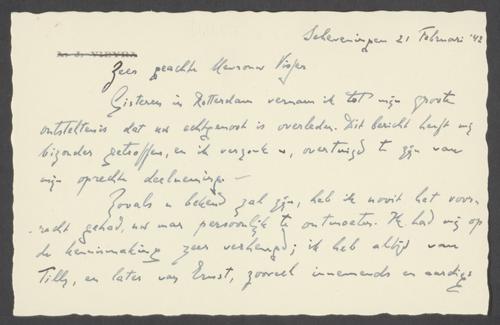 Scheveningen 21 Februari '42
Zeer geachte Mevrouw Visser
Gisteren in Rotterdam vernam ik tot mijn groote
ontsteltenis dat uw echtgenoot is overleden. Dit bericht heeft mij
bizonder getroffen, en ik verzoek u, overtuigd te zijn van
mijn oprechte deelneming. —
Zooals u bekend zal zijn, heb ik nooit het voor-
recht gehad, uw man persoonlijk te ontmoeten. Ik had mij op
de kennismaking zeer verheugd; ik heb altijd van
Tilly, en later van Ernst, zooveel innemends en aardigs